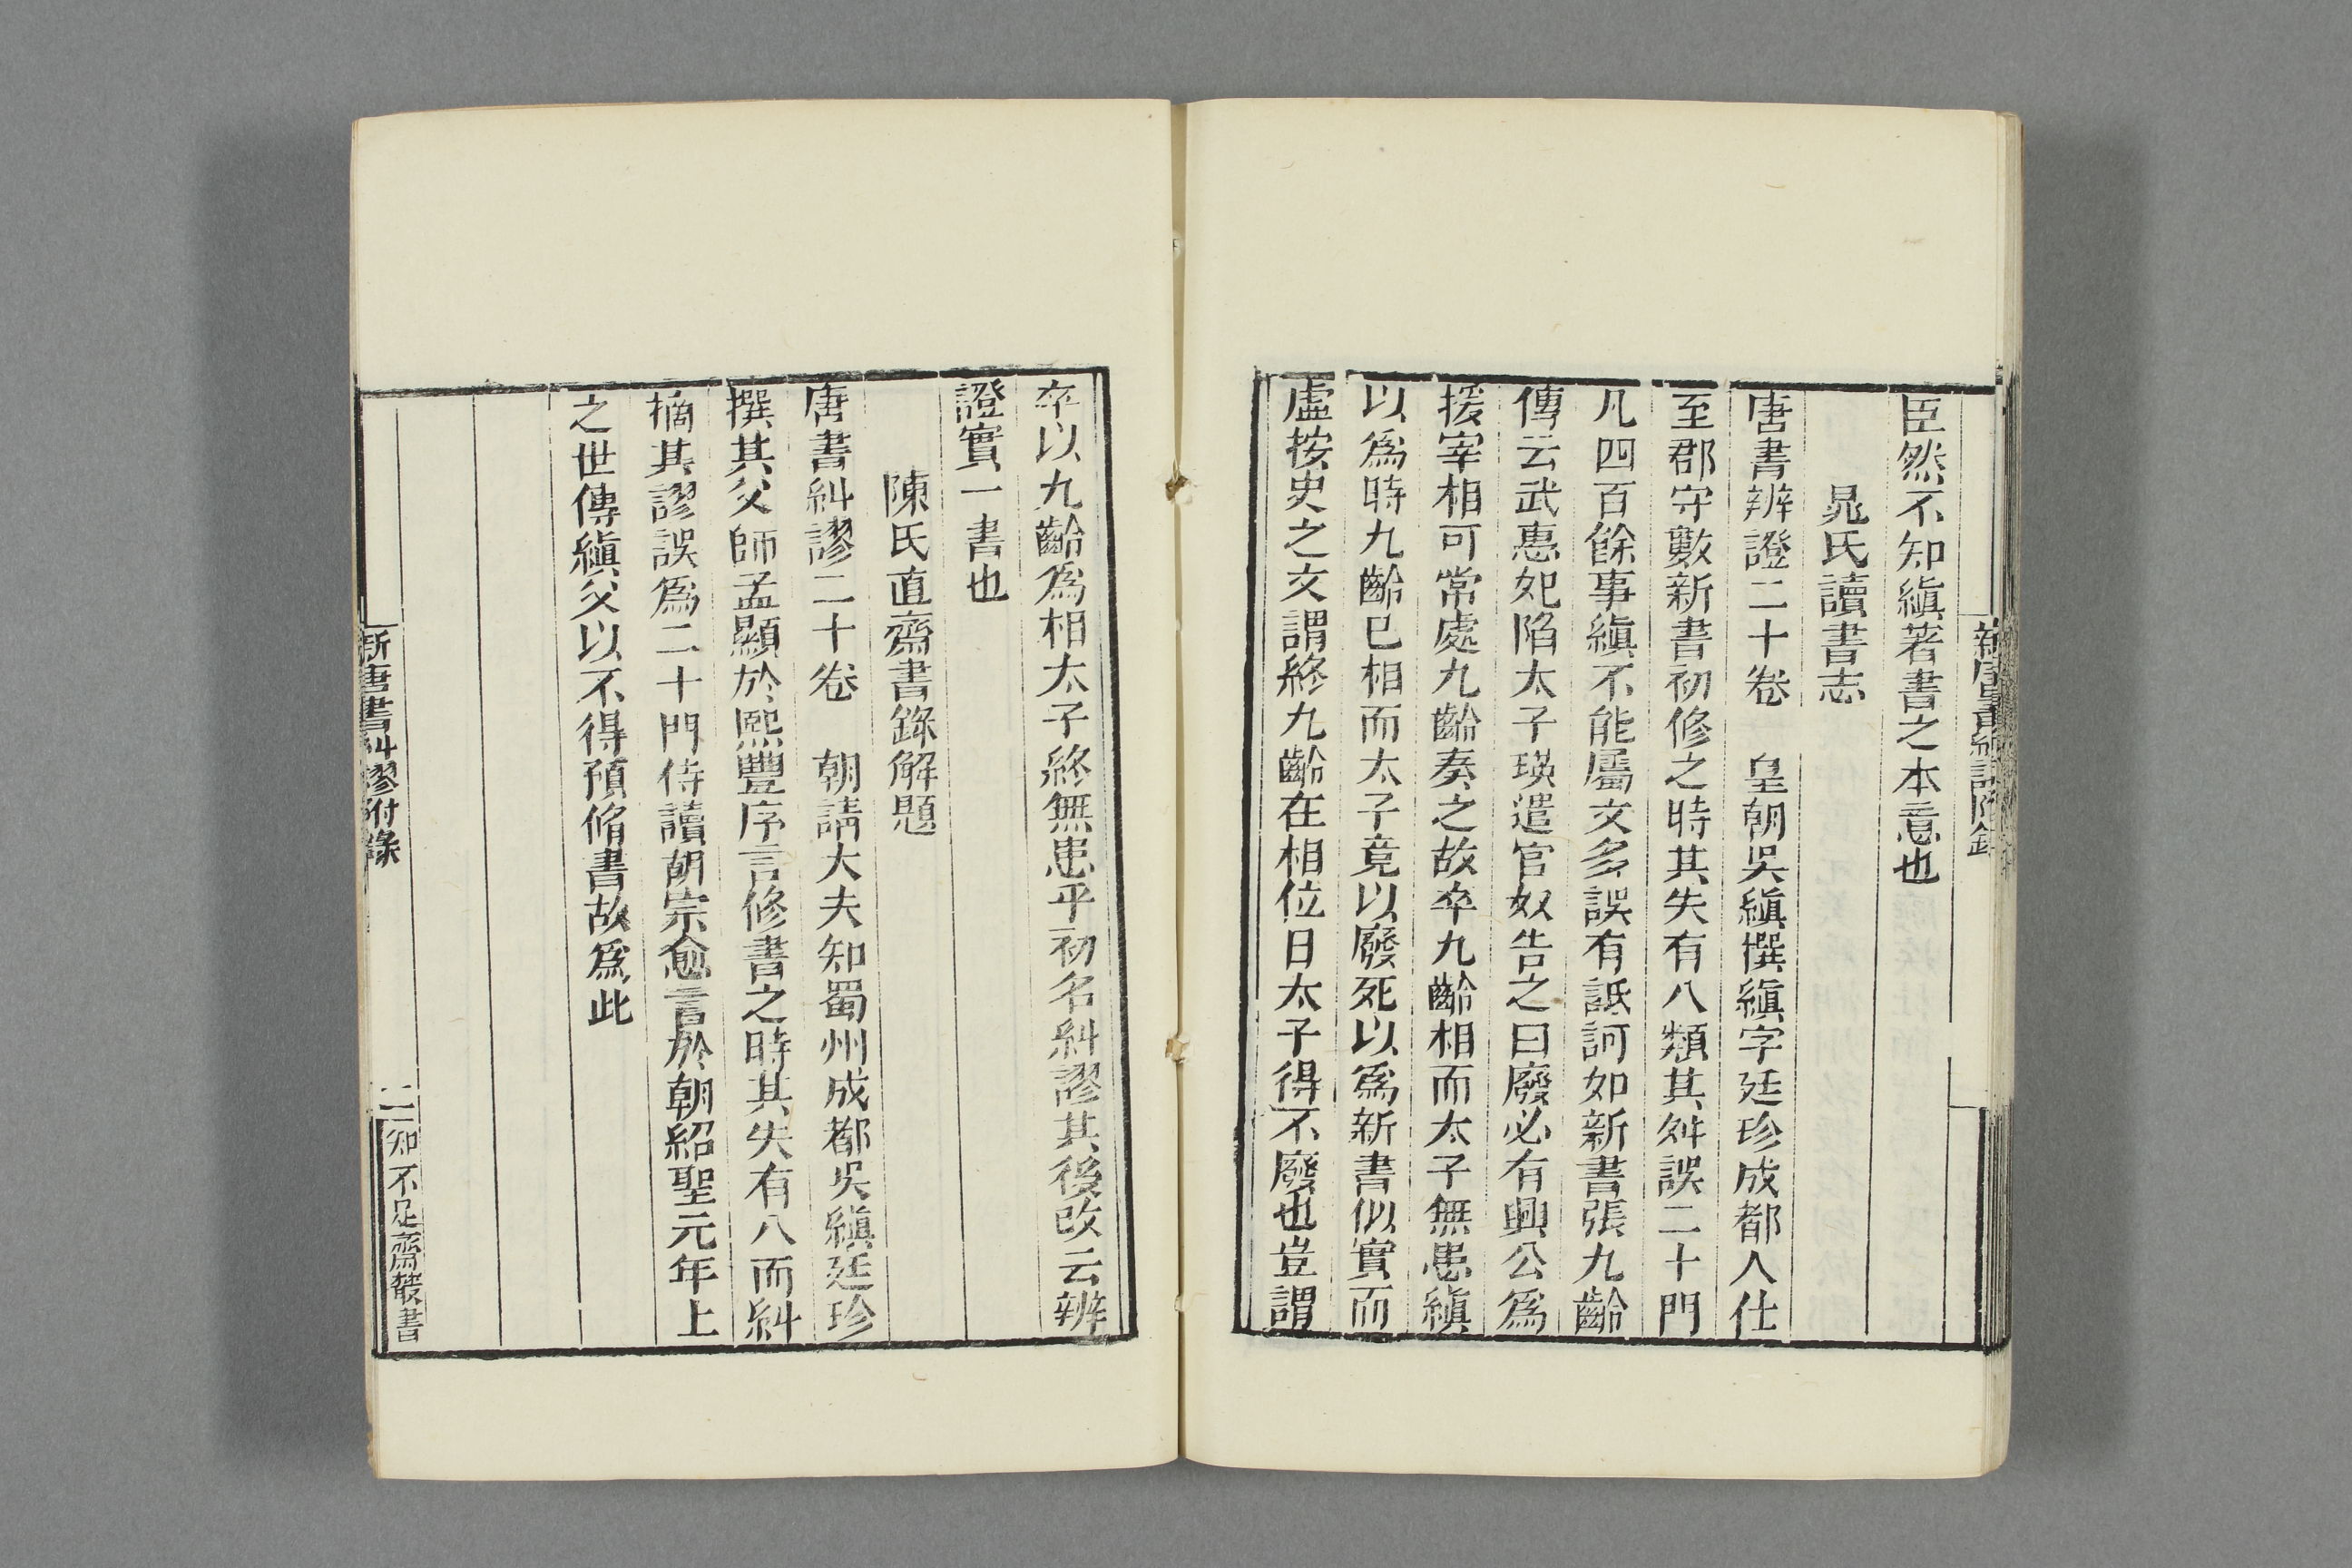 臣然不知縝著書之本意也
晁氏讀書志
唐書辨證二十卷　皇朝吳縝撰縝字廷珍成都人仕
至郡守數新書初修之時其失有八類其舛誤二十門
凡四百餘事縝不能屬文多誤有詆訶如新書張九齡
傳云武惠妃陷太子瑛遣官奴告之曰廢必有興公爲
援宰相可常處九齡奏之故卒九齡相而太子無患縝
以爲時九齡已相而太子竟以廢死以爲新書似實而
虛按史之文謂終九齡在相位日太子得不廢也豈謂
卒以九齡爲相太子終無患乎初名糾謬其後改云辨
證實一書也
陳氏直齋書錄解題
唐書糾謬二十卷　朝請大夫知蜀州成都吳縝廷珍
撰其父師孟顯於熙豐序言修書之時其失有八而糾
摘其謬誤爲二十門侍讀胡宗愈言於朝紹聖元年上
之世傳縝父以不得預脩書故爲此
新唐書糾謬附錄
二
知不足齋叢書